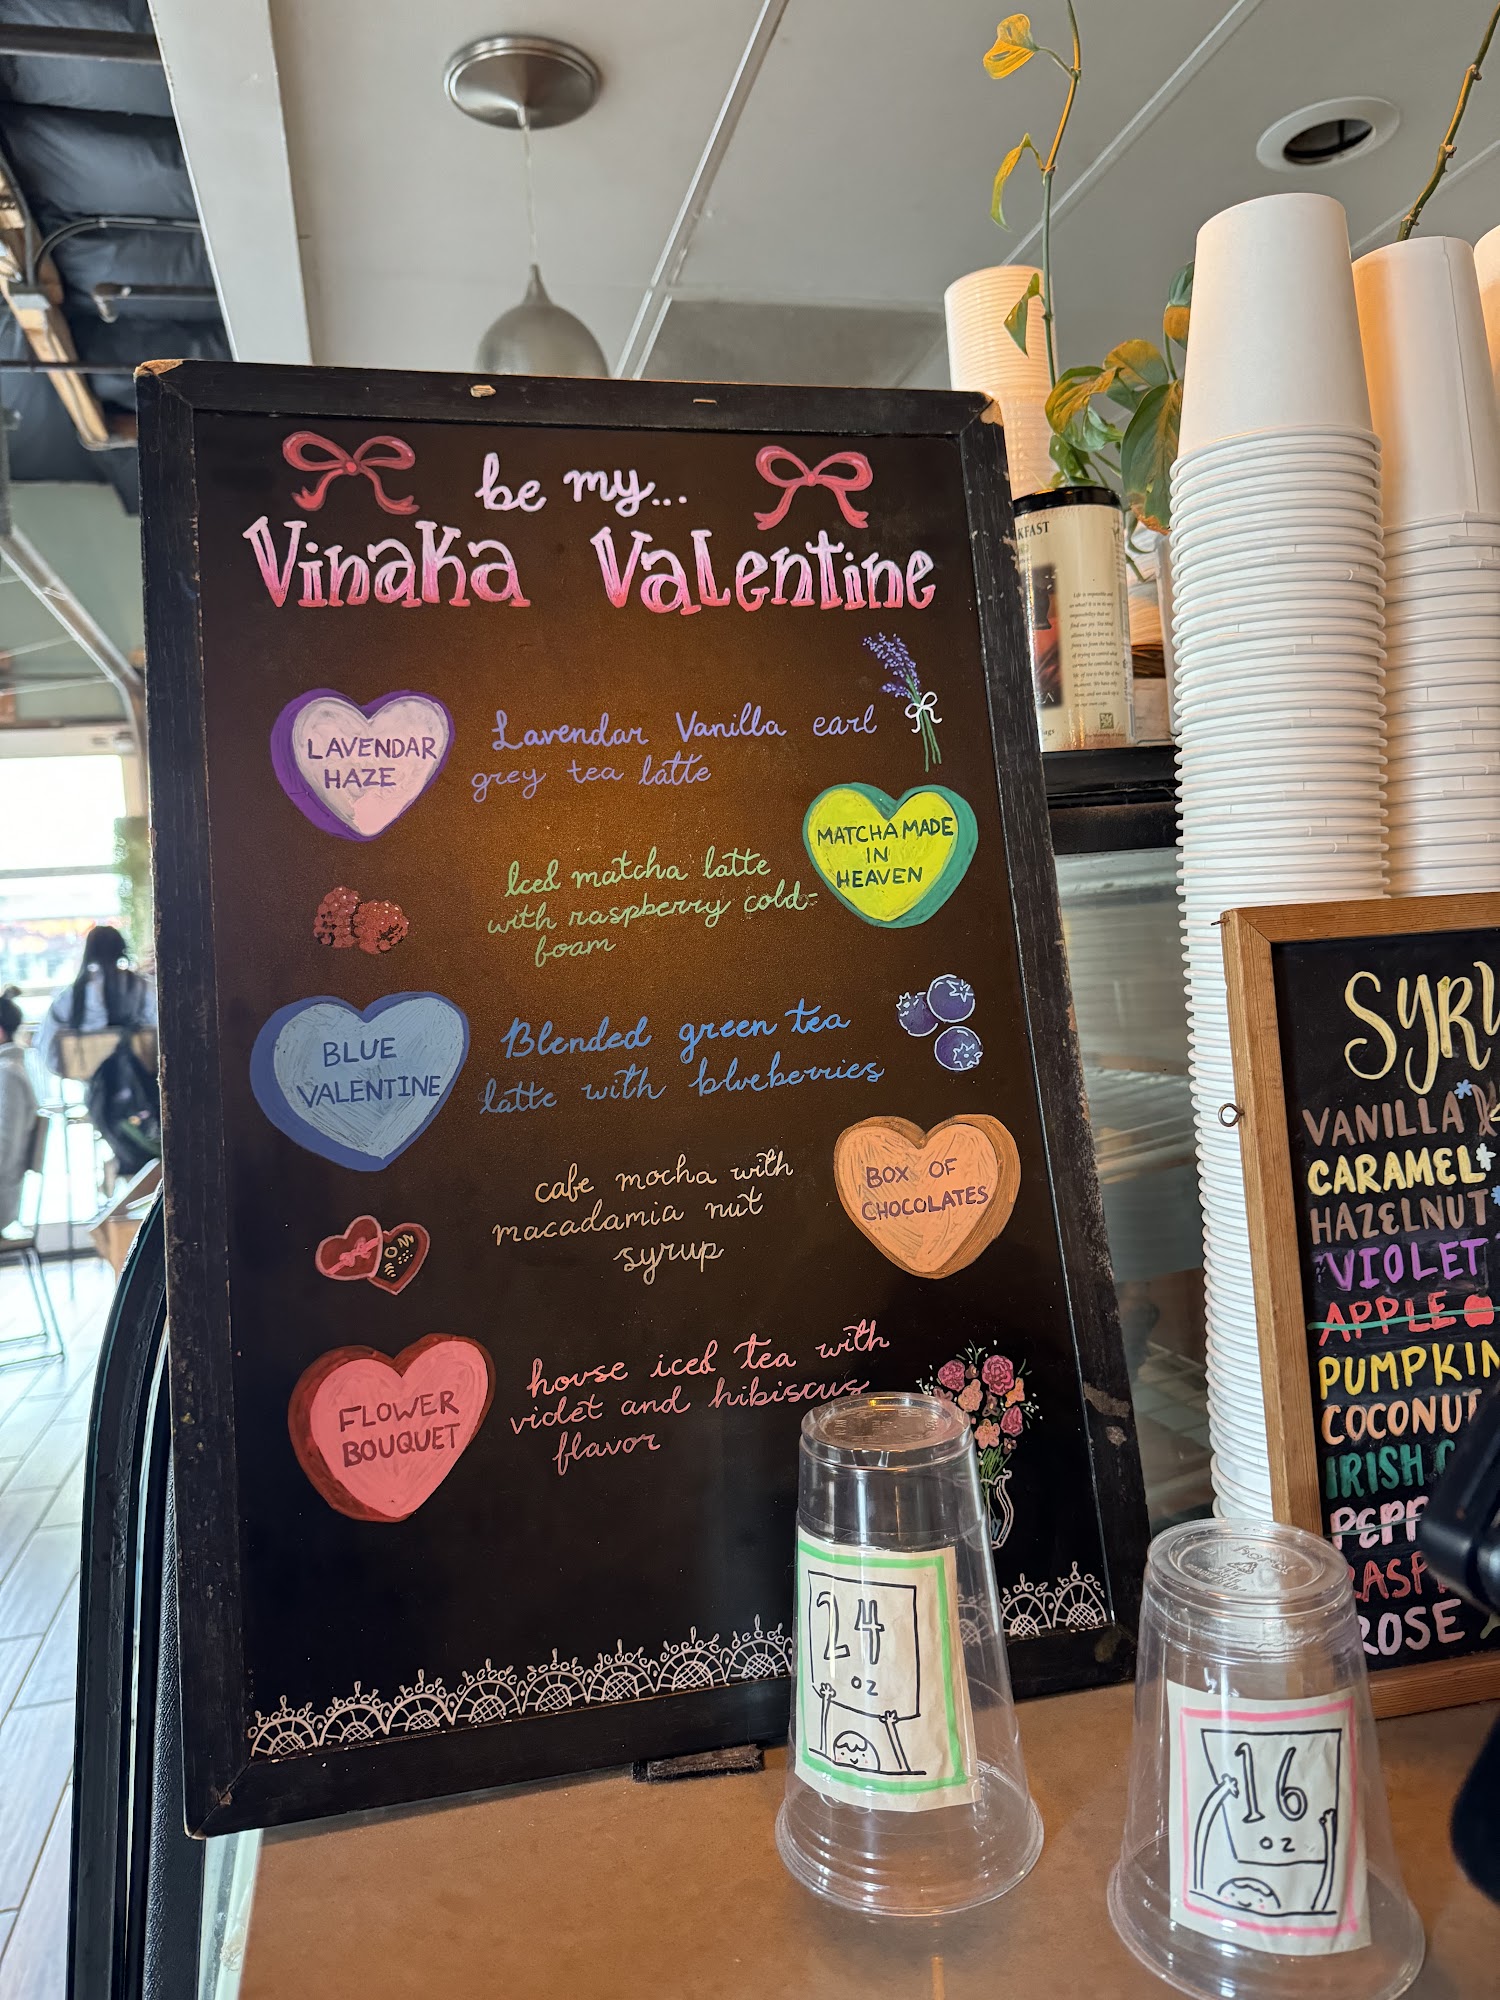 be my...
Vinaka Valentine
LAVENDAR
HAZE
Lavendar Vanilla earl
grey tea latte
MATCHA MADE
IN
HEAVEN
Iced matcha latte
with raspberry cold-
foam
BLUE
VALENTINE
Blended green tea
latte with blueberries
BOX OF
CHOCOLATES
cafe mocha with
macadamia nut
syrup
FLOWER
BOUQUET
house iced tea with
violet and hibiscus
flavor
24
oz
16
oz
VANILLA
CARAMEL
HAZELNUT
VIOLET
APPLE
PUMPKIN
COCONUT
IRISH
ROSE